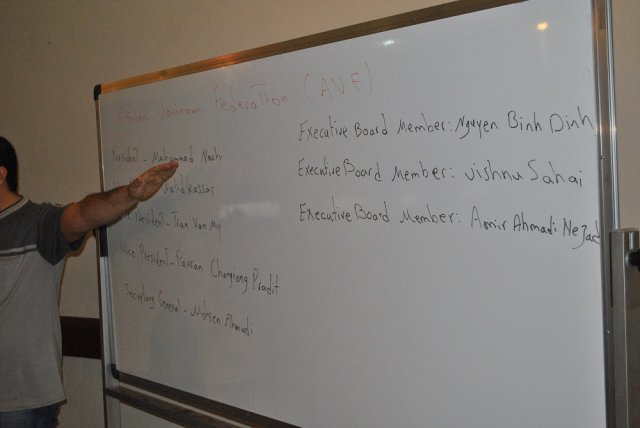 Asian Vovinam Federation (AVF)
President - Mohammad Nouhi
President - Tran Van My
Vice President - Paisan Changiong Pradit
Secretary General - Mohsen Ahmadi
Executive Board Member: Nguyen Binh Dinh
Executive Board Member: Vishnu Sahai
Executive Board Member: Amir Ahmadi Nejad